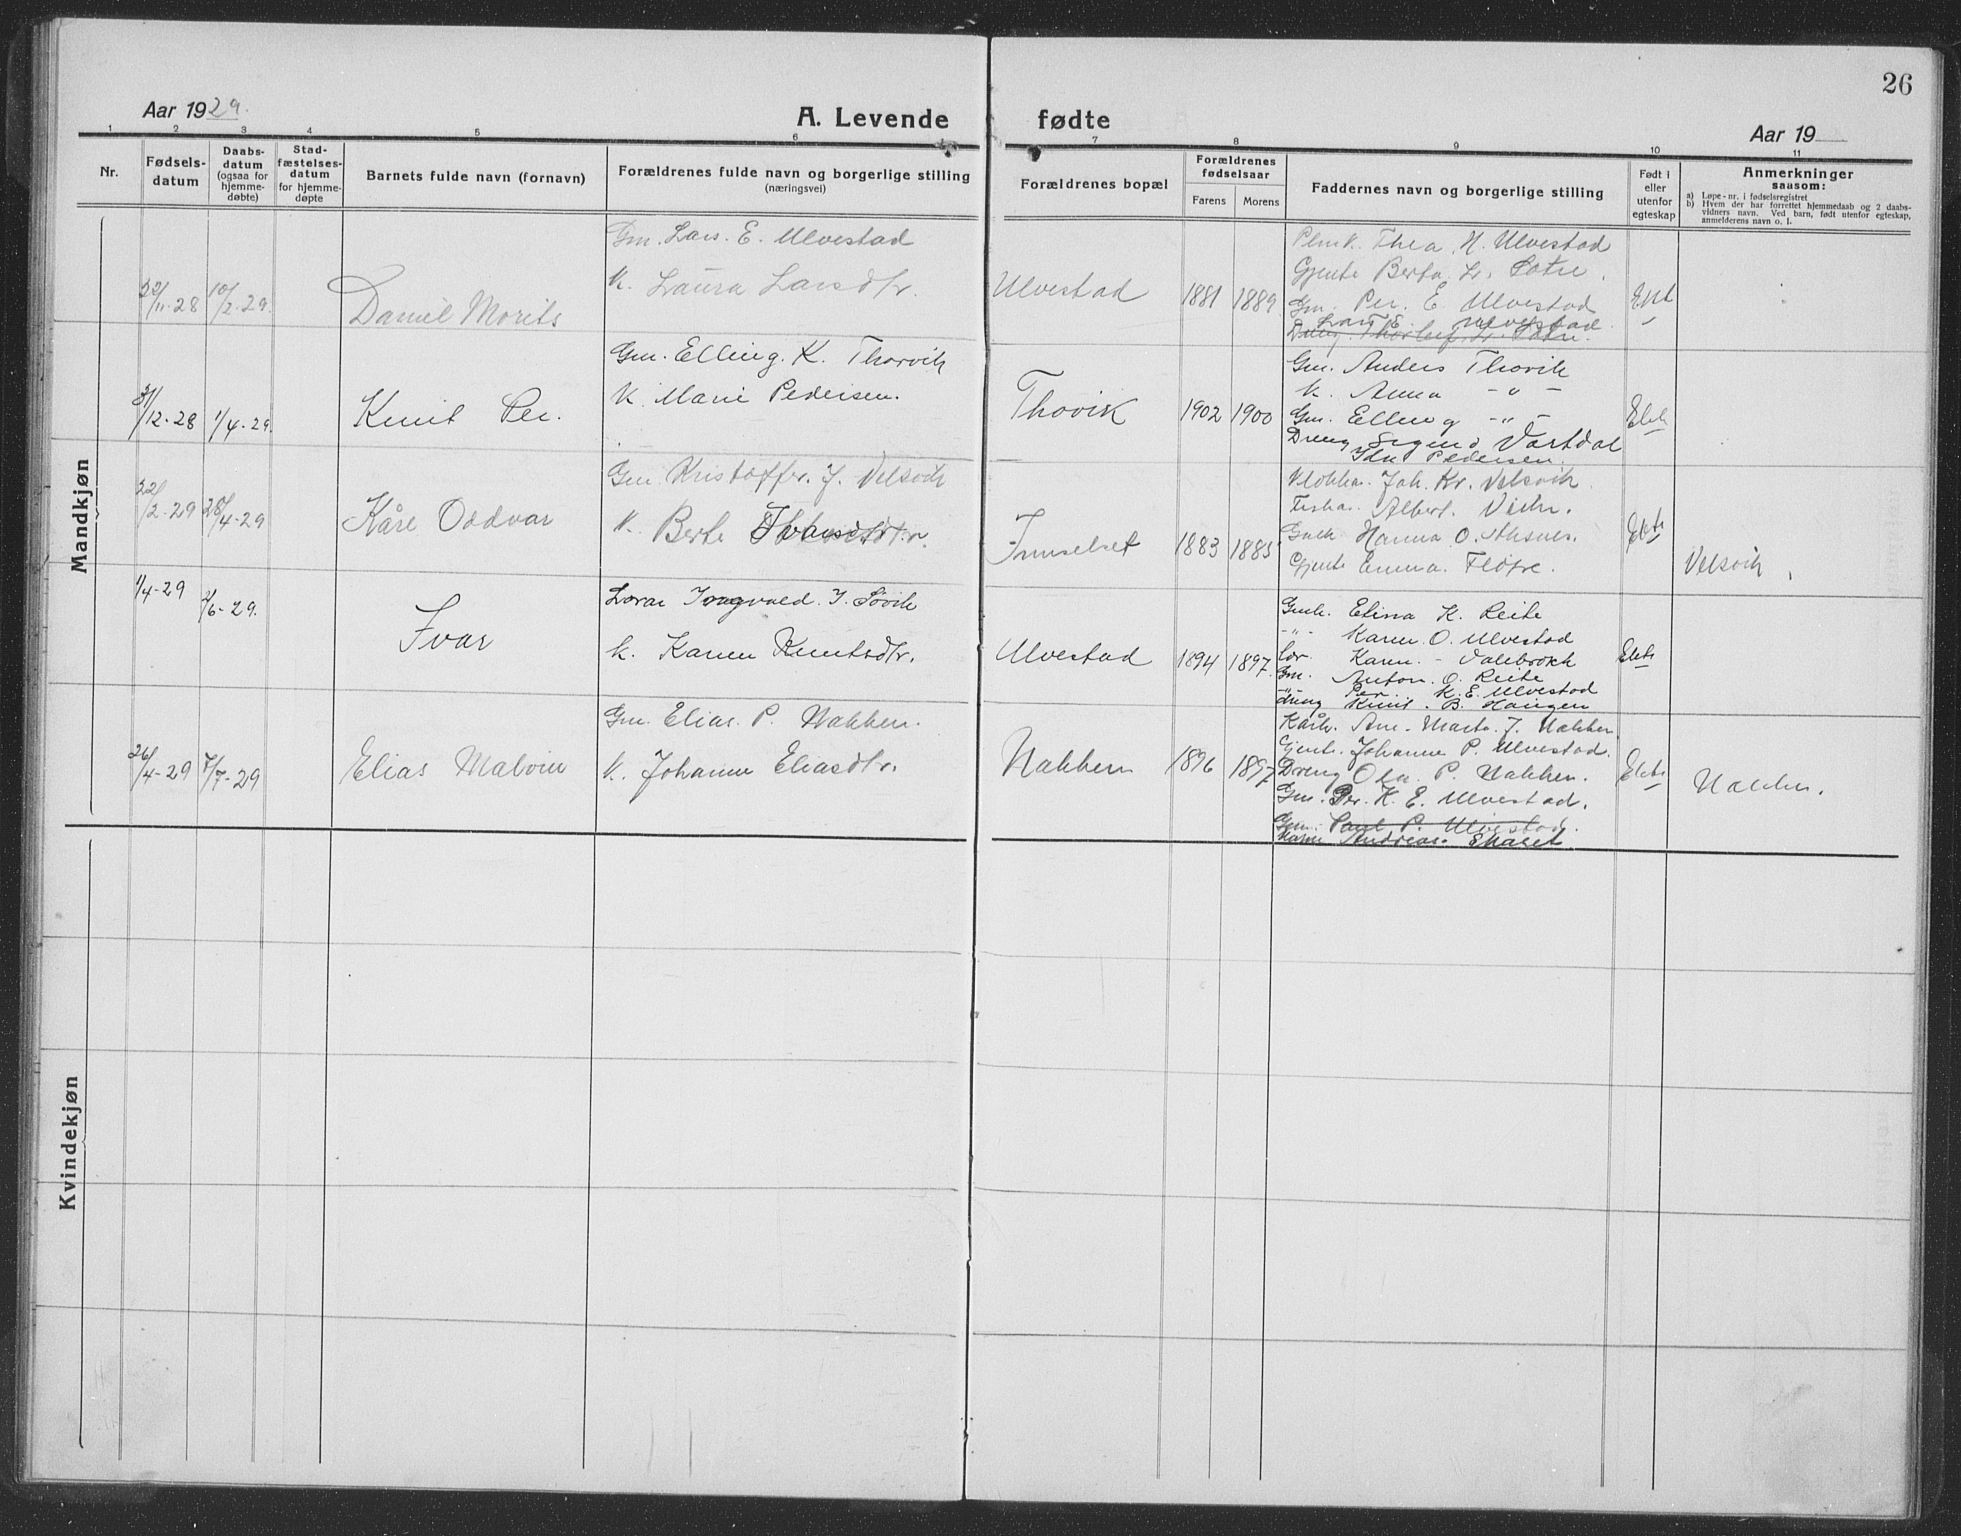 26
Aar 1929.
A. Levende fødte
Aar 19
1 2 3 4 5 6 7 8 9 10 11
Nr.
Fødsels-datum
Daabs-datum (ogsaa for hjemme-døbte)
Stad-fæstelses-datum for hjemme-døpte
Barnets fulde navn (fornavn)
Forældrenes fulde navn og borgerlige stilling (næringsvei)
Forældrenes bopæl
Forældrenes fødselsaar
Farens Morens
Faddernes navn og borgerlige stilling
Født i eller utenfor egteskap
Anmerkninger
saasom:
a) Løpe-nr. i fødselsregistret
b) Hvem der har forrettet hjemmedaab og 2 daabs-
vidners navn. Ved barn, født utenfor egteskap,
anmelderens navn o. l.
Mandkjøn
22/11-28 10/2-29.
Daniel Morits
Gm. Lars. E. Ulvestad
K. Laura Larsdtr.
Ulvestad
1881 1889
Thea. H. Ulvestad
Gjente Berta. L. Sætre.
Gm. Per. E. Ulvestad
Lars E. Ulvestad.
Dreng. Thorleif. L. Sætre.
Ekt
31/12-28 1/4-29.
Knut Per.
Gm. Elling. K. Thorvik
K Marie Pedersen.
Thovik
1902 1900
Gm. Anders Thovik
K. Anna -"-
Gm. Elling -"-
Dreng Sigurd Vartdal
Pedersen.
Ekte
22/2-29 28/4-29
Kåre Oddvar
Gm. Kristoffer. J. Velsvik
K. Berte
1883 1885
Joh. Kr. Velsvik.
Albert.
Hanna O. Aasnes.
Gjente Emma. Fløtre.
Ekte
Velsvik.
1/4-29 2/6-29.
Ivar
Lærar Ingvald. J. Søvik
K. Karen Knutsdtr.
Ulvestad
1894 1897.
Gmk. Elina K. Reite
-"- Karen. O. Ulvestad
Lær. Karen. - Valebrokk
Gm. Anton. O. Reite
-"- Per. K. E. Ulvestad
dreng Knut. B. Haugen
Ekte
26/4-29 7/7-29
Elias Malvin
Gm. Elias. P. Nakken.
K. Johanne Eliasdtr.
Nakken
1896 1897
Kårk. Ane-Marta. J. Nakken
Gjente. Johanne P. Ulvestad.
Dreng Ola. P. Nakken.
Gm. Per. K. E. Ulvestad.
Gm. Paul P. Ulvestad.
Andreas Ekaset.
Ekte
Nakken.
Kvindekjøn